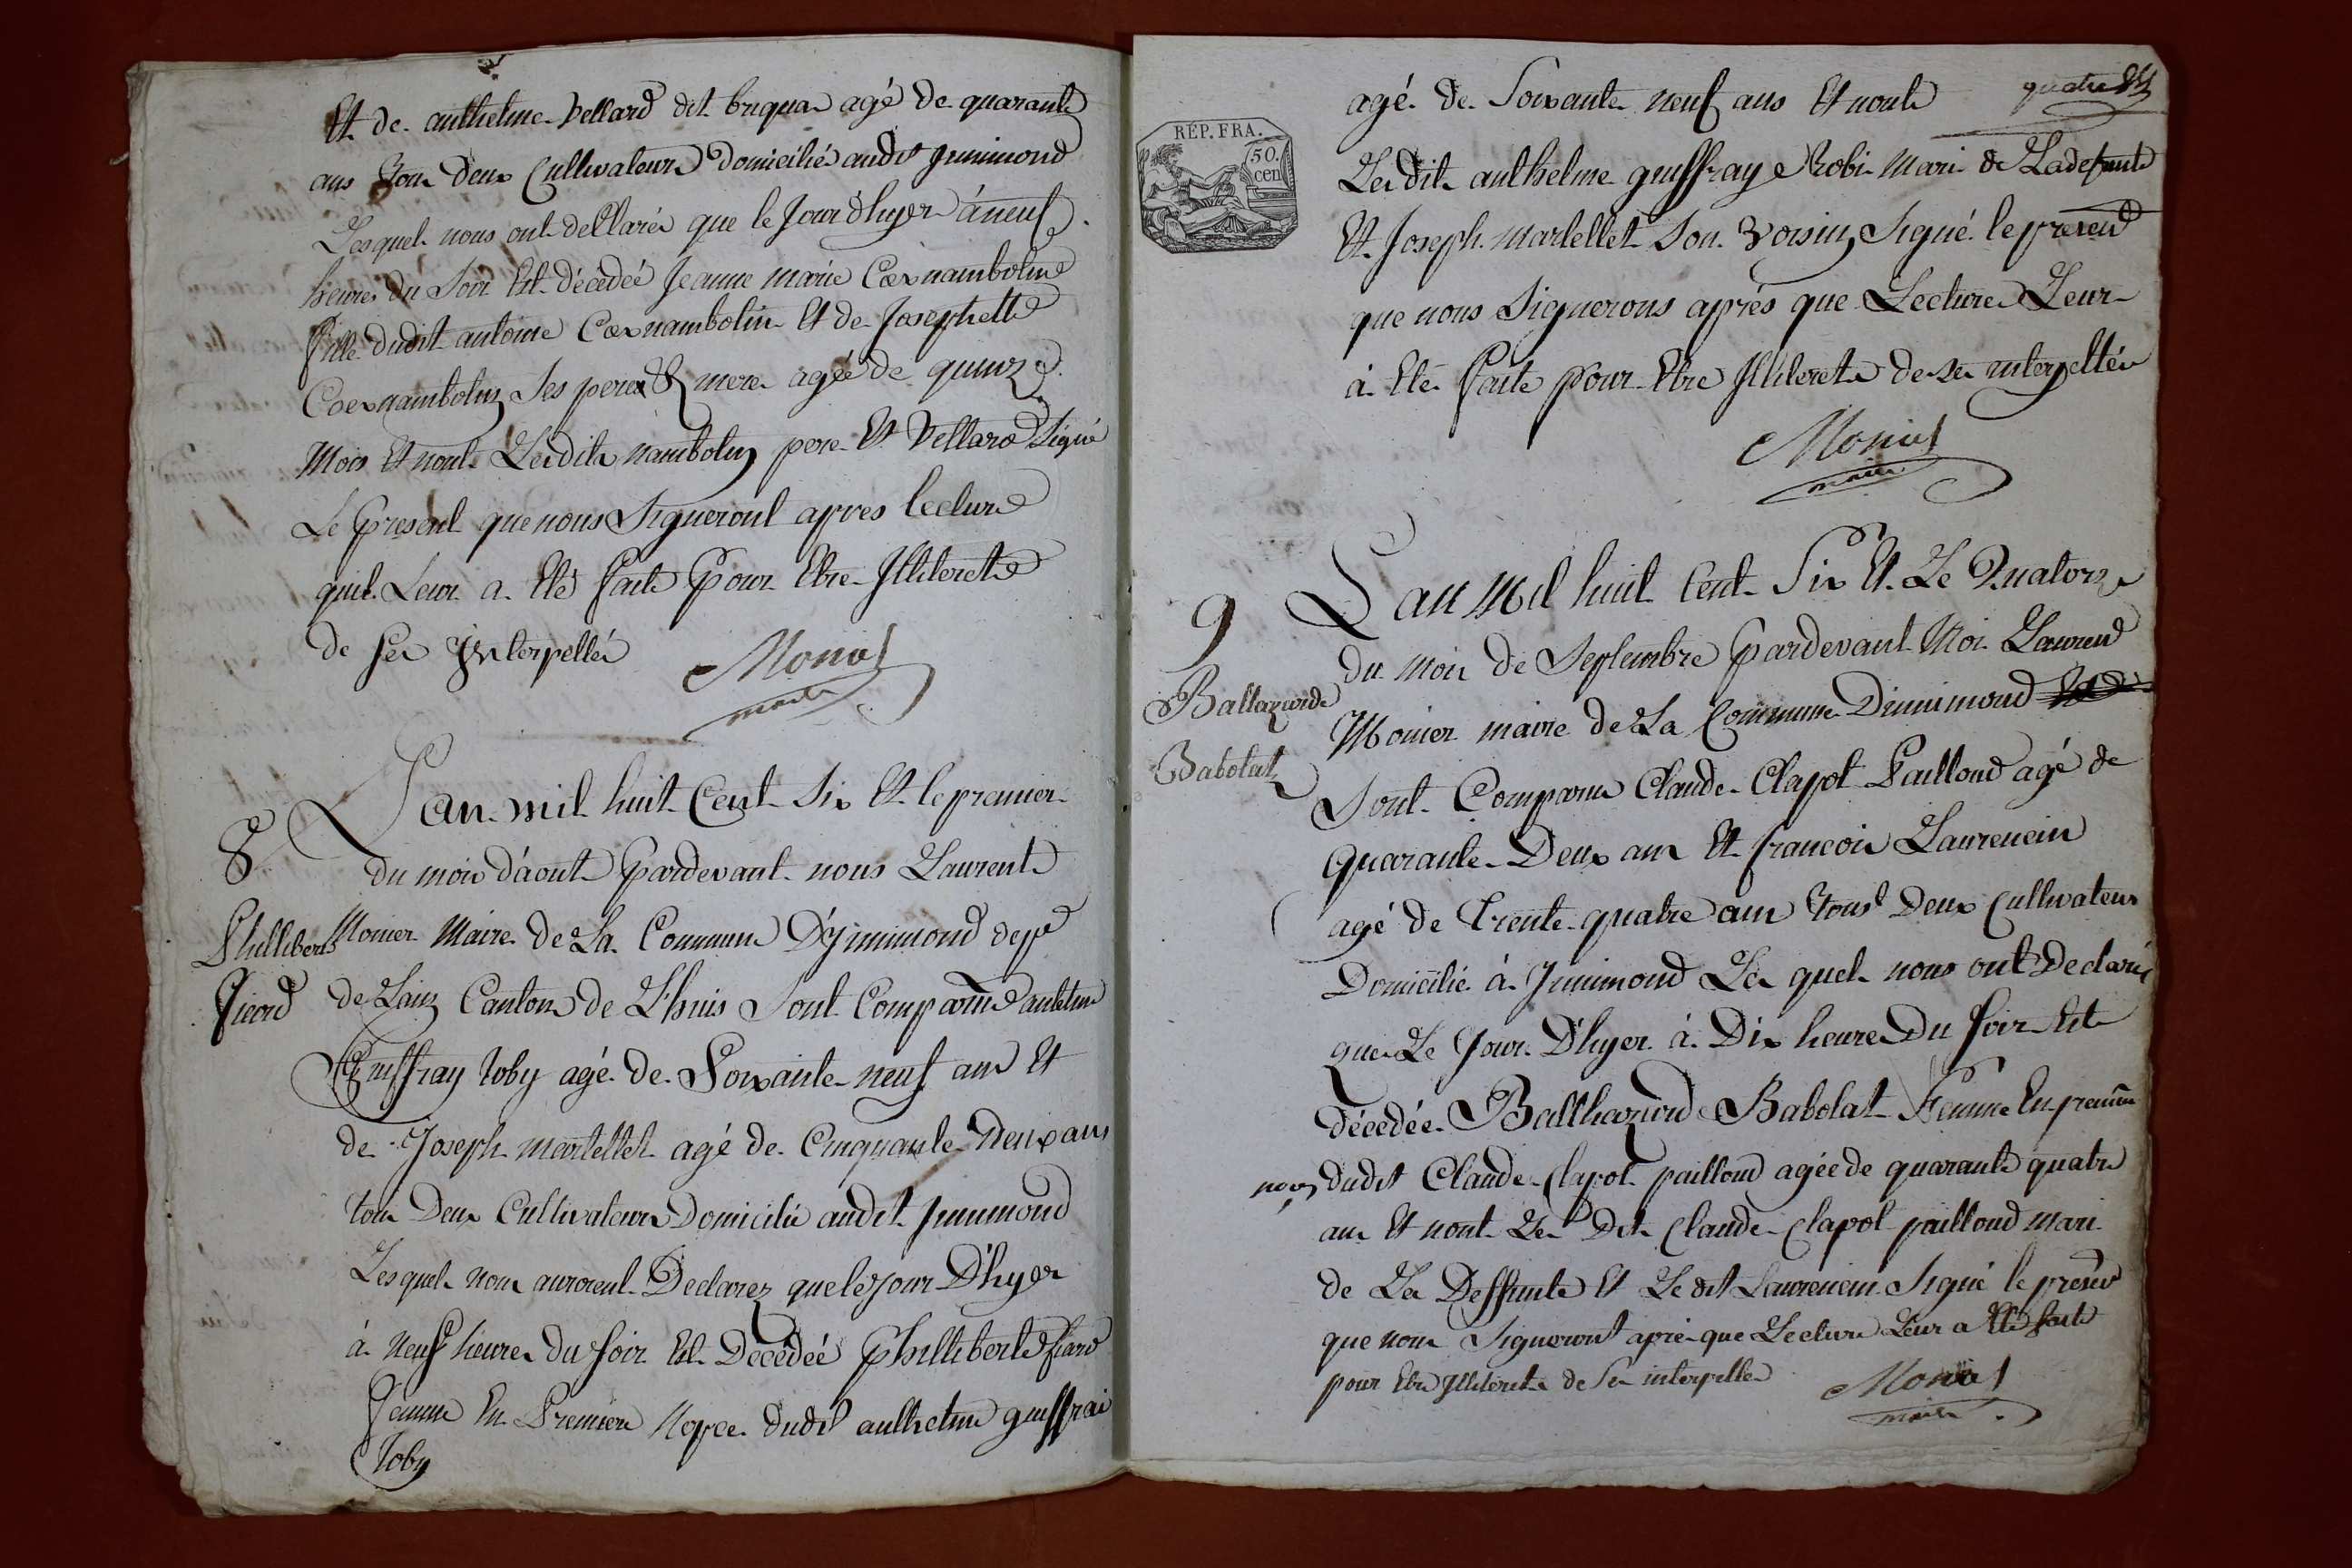 Et de anthelme Vellard dit briquan agé de quarante
ans tous deux Cultivateurs domicilié audit Jnnimond
Lesquel nous ont dellarés que le Jour d'hyer à neuf
heures du Soir Est décédée Jeanne marie Coexnambotin
fille dudit antoine Coexnambotin Et de Josephette
Coexnambotin Ses peres & mere agée de quinze
Mois Et nont Lesdits nambotin pere Et Vellard Signé
Le present que nous Signeront apres lecture
quil Leur a Eté faite Pour Etre Jlliterets
de ser Jnterpellés
Monier
maire
8
Phillibert
ficard
Lan mil huit Cent Six Et le premier
du mois d'aout Pardevant nous Laurent
Monier Maire de La Commune D'Jnnimond dept
de Lain Canton de L'huis Sont Comparus antelme
Gruffray toby agé de Soixante neuf ans Et
de Joseph martellet agé de Cinquante Deux ans
tous Deux Cultivateurs Domicilié audit Jnnimond
Lesquels nous auroient Declarez que le jour D'hyer
à neuf heures du soir Est Decédéé Philliberte fiard
femme En Premiere Nopce dudit anthelme gruffrai
Toby
quatre
RÉP. FRA.
50.
cen
agé de Soixante neuf ans Et nont
Lesdits anthelme gruffray Robi Mari de Ladefunte
Et Joseph martellet Son Voisin Signé le present
que nous Signerons après que Lecture Leur
à Eté faite Pour Etre Jlliterets de se interpellés
Monier
maire
9
Baltazarde
Babolat
Lan Mil huit Cent Six Et Le Quatorze
du mois de Septembre Pardevant Moi Laurend
Monier maire de La Commune Dinnimond
Sont Comparus Claude Clapot Pailloud agé de
Quarante Deux ans Et francois Laurencin
agé de trente quatre ans tous Deux Cultivateurs
Domicilié à Jnnimond Les quels nous ont Declarés
que Le Jour D'hyer à Dix heures Du soir Est
Décedée Balthazard Babolat Femme En premiere
noces dudit Claude Clapot pailloud agée de quarante quatre
ans Et nont Les Dits Claude Clapot pailloud mari
de La Deffunte Et Le dit Laurencin Signé le present
que nous Signeront après que Lecture Leur a Eté faite
pour Etre Jlliterets de Ser interpeller
Monier
maire